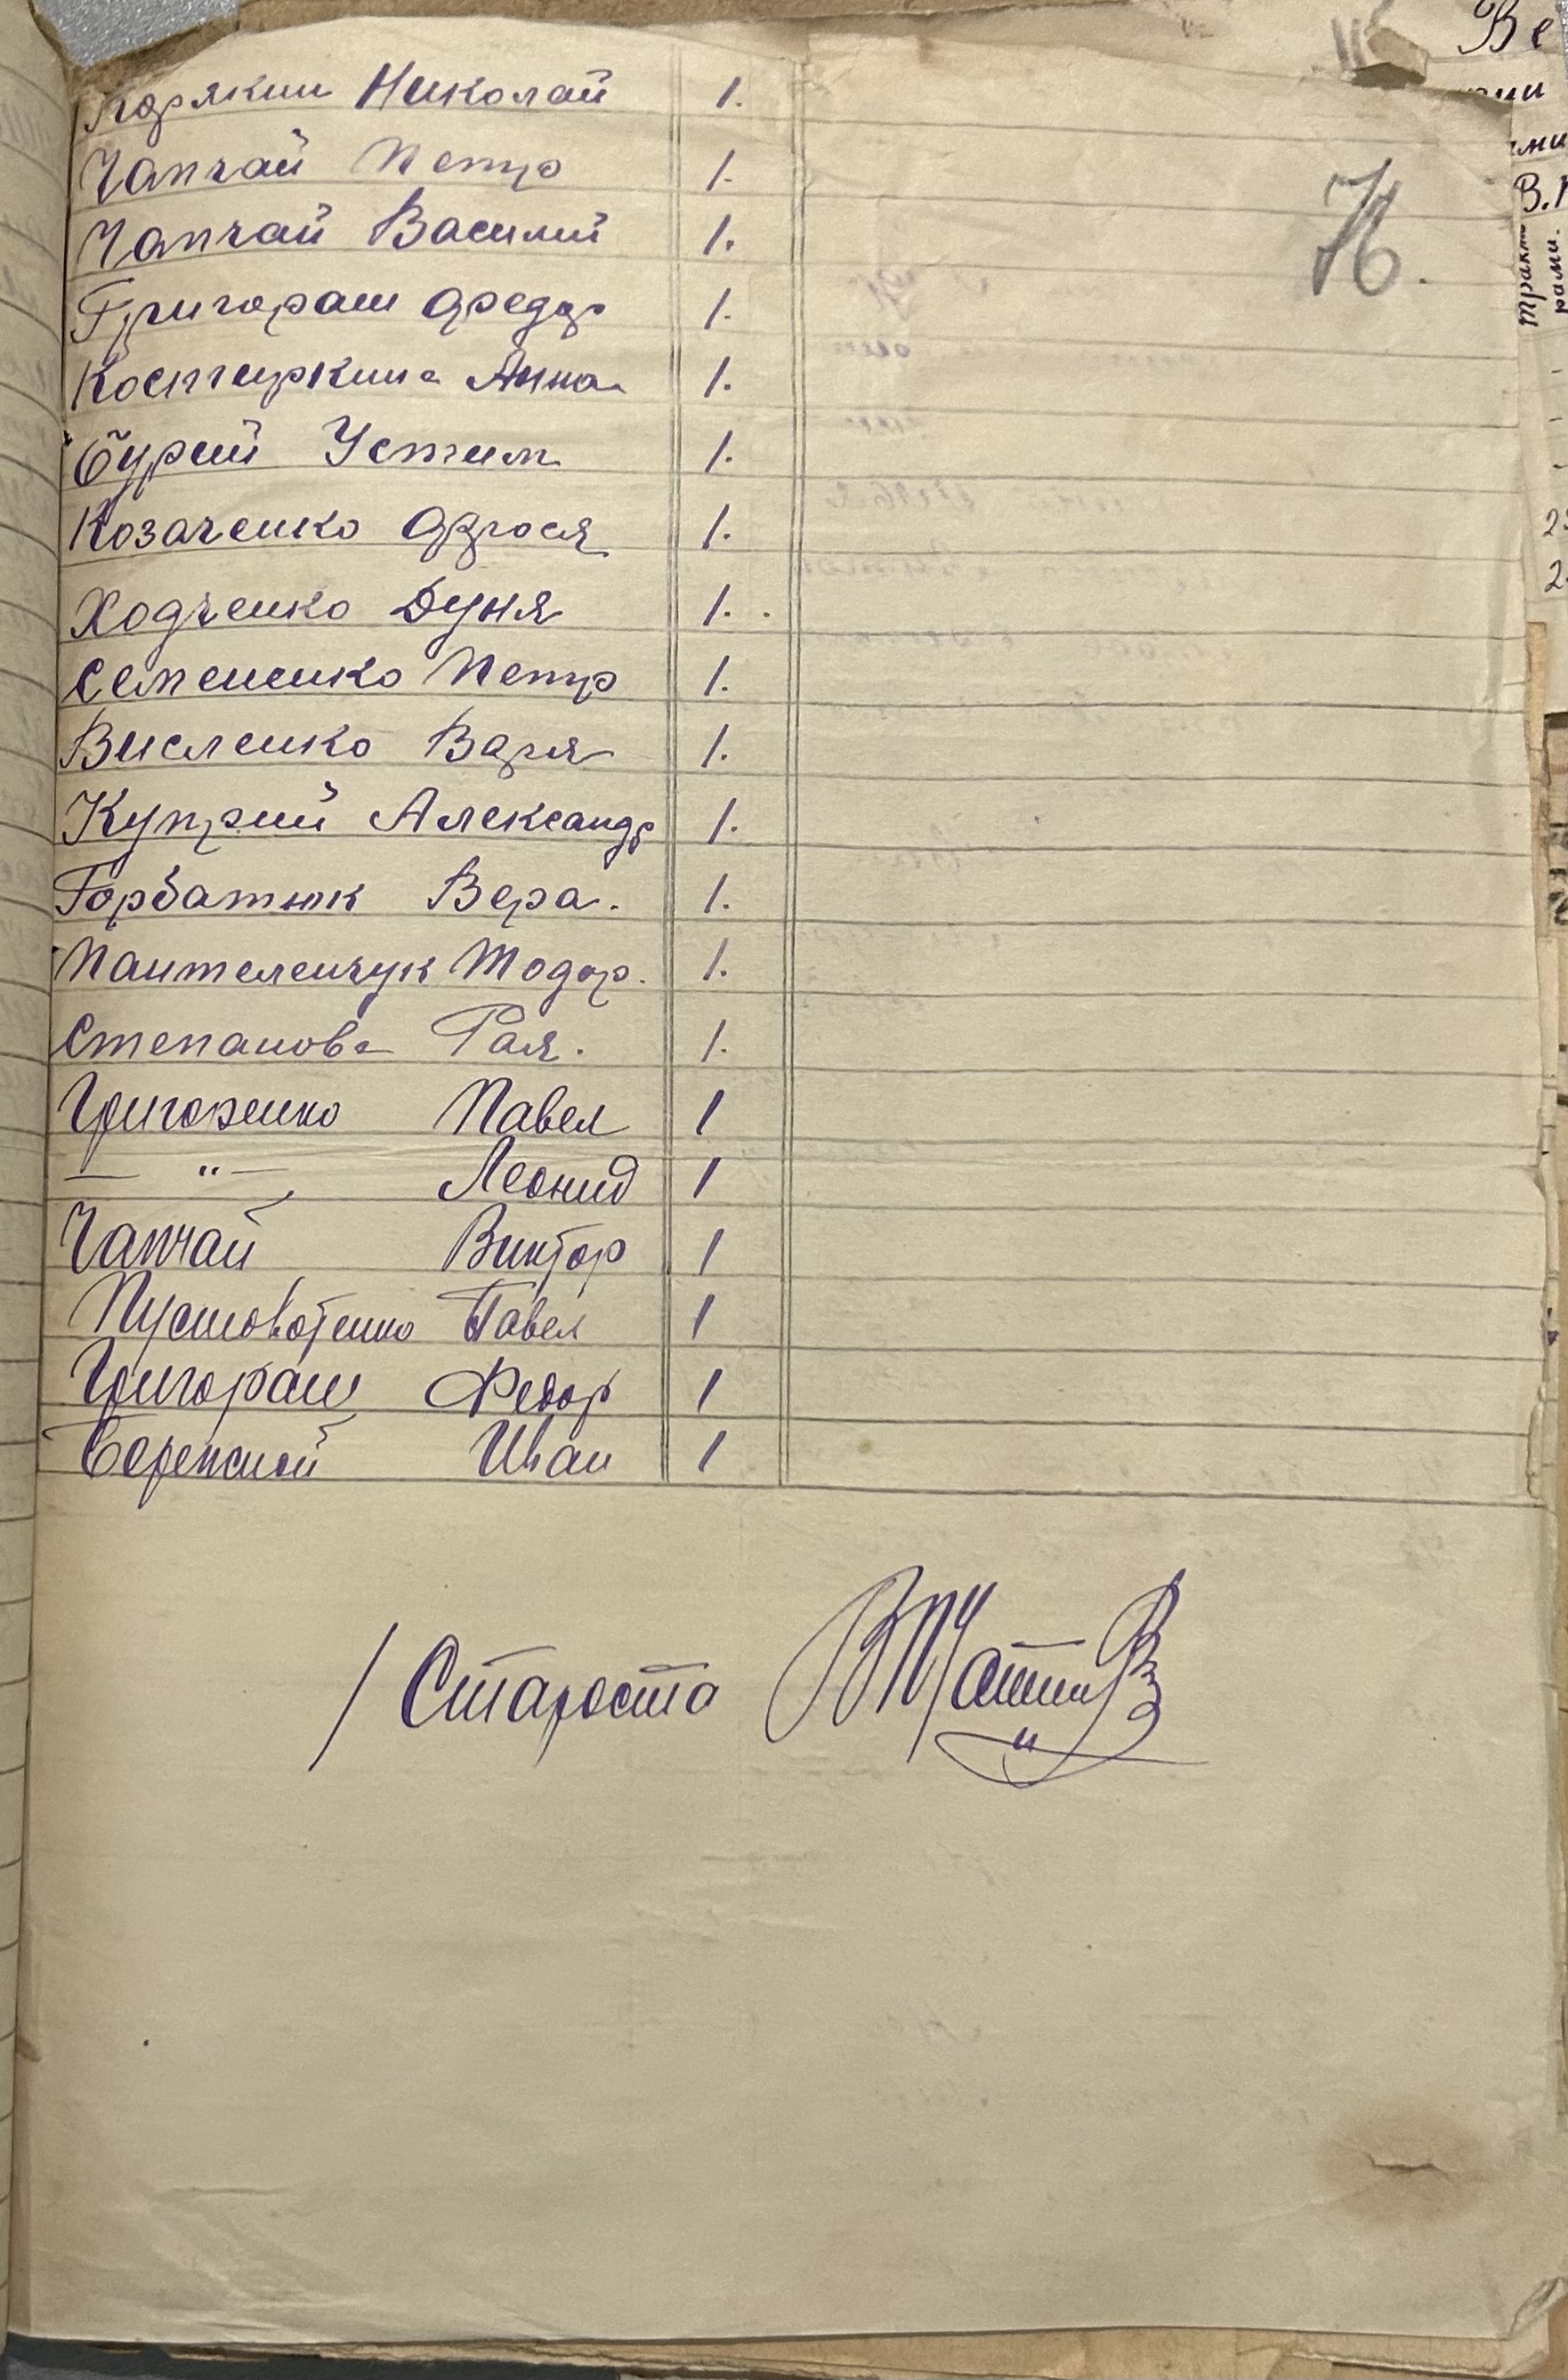 Корякин Николай 1.
Чапчай Петр 1.
Чапчай Василий 1.
Григораш Федор 1.
Костыркина Анна 1.
Бурий Устим 1.
Козаченко Фрося 1.
Ходченко Дуня 1.
Семененко Петр 1.
Висленко Варя 1.
Куприй Александр 1.
Горбатюк Вера. 1.
Пантеленчук Тодор. 1.
Степанова Рая. 1.
Григоренко Павел 1
— " — Леонид 1
Чапчай Виктор 1
Пустовотенко Павел 1
Григораш Федор 1
Иван 1
/ Староста
Ве
В.
тракт
рами.